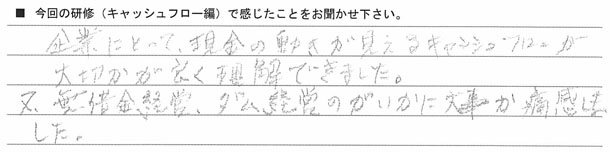 ■ 今回の研修（キャッシュフロー編）で感じたことをお聞かせ下さい。
企業にとって、現金の動きが見えるキャッシュフローが
大切かが良く理解できました。
又、無借金経営、ダム経営のがいかに大事か痛感しま
した。